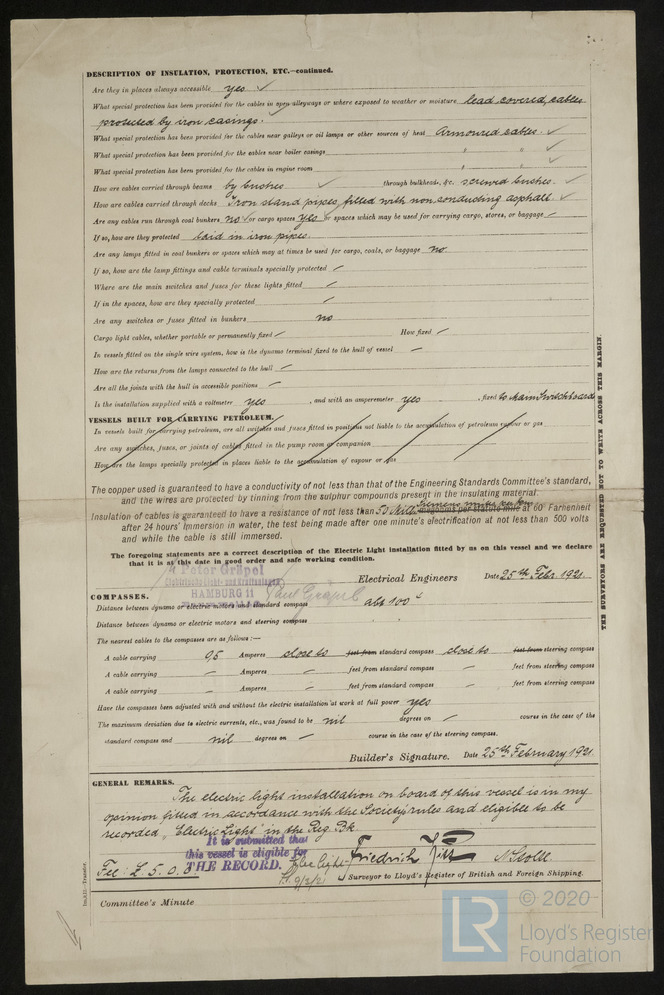 DESCRIPTION OF INSULATION, PROTECTION, ETC.—continued.
Are they in places always accessible yes
What special protection has been provided for the cables in open alleyways or where exposed to weather or moisture lead covered, cables
protected by iron casings.
What special protection has been provided for the cables near galleys or oil lamps or other sources of heat Armoured cables.
What special protection has been provided for the cables near boiler casings " "
What special protection has been provided for the cables in engine room " "
How are cables carried through beams by bushes through bulkheads, &c. screwed bushes.
How are cables carried through decks Iron stand pipes, filled with non conducting asphalt.
Are any cables run through coal bunkers no or cargo spaces yes or spaces which may be used for carrying cargo, stores, or baggage –
If so, how are they protected laid in iron pipes.
Are any lamps fitted in coal bunkers or spaces which may at times be used for cargo, coals, or baggage no
If so, how are the lamp fittings and cable terminals specially protected –
Where are the main switches and fuses for these lights fitted –
If in the spaces, how are they specially protected –
Are any switches or fuses fitted in bunkers no
Cargo light cables, whether portable or permanently fixed – How fixed –
In vessels fitted on the single wire system, how is the dynamo terminal fixed to the hull of vessel –
How are the returns from the lamps connected to the hull –
Are all the joints with the hull in accessible positions –
Is the installation supplied with a voltmeter yes , and with an amperemeter yes , fixed to Mainswitchboard
VESSELS BUILT FOR CARRYING PETROLEUM.
In vessels built for carrying petroleum, are all switches and fuses fitted in positions not liable to the accumulation of petroleum vapour or gas
Are any switches, fuses, or joints of cables fitted in the pump room or companion
How are the lamps specially protected in places liable to the accumulation of vapour or gas
The copper used is guaranteed to have a conductivity of not less than that of the Engineering Standards Committee's standard,
and the wires are protected by tinning from the sulphur compounds present in the insulating material.
Insulation of cables is guaranteed to have a resistance of not less than megohms per statute mile at 60° Farhenheit
after 24 hours' immersion in water, the test being made after one minute's electrification at not less than 500 volts
and while the cable is still immersed.
The foregoing statements are a correct description of the Electric Light installation fitted by us on this vessel and we declare
that it is at this date in good order and safe working condition.
Peter Gräpel
HAMBURG 11
Paul Gräpel
Electrical Engineers Date 25th Febr. 1921.
COMPASSES.
Distance between dynamo or electric motors and standard compass abt 100'
Distance between dynamo or electric motors and steering compass
The nearest cables to the compasses are as follows:—
A cable carrying 0,5 Amperes close to feet from standard compass close to feet from steering compass
A cable carrying – Amperes – feet from standard compass – feet from steering compass
A cable carrying – Amperes – feet from standard compass – feet from steering compass
Have the compasses been adjusted with and without the electric installation at work at full power yes
The maximum deviation due to electric currents, etc., was found to be nil degrees on – course in the case of the
standard compass and nil degrees on – course in the case of the steering compass.
Builder's Signature. Date 25th February 1921.
GENERAL REMARKS.
The electric light installation on board of this vessel is in my
opinion fitted in accordance with the Society's rules and eligible to be
recorded „Electric Light" in the Reg Bk
It is submitted that
this vessel is eligible for
THE RECORD. Elec light
Fee: £ 5. 0. 0
Friedrich
Surveyor to Lloyd's Register of British and Foreign Shipping.
Committee's Minute
THE SURVEYORS ARE REQUESTED NOT TO WRITE ACROSS THIS MARGIN.
LR
© 2020
Lloyd's Register
Foundation